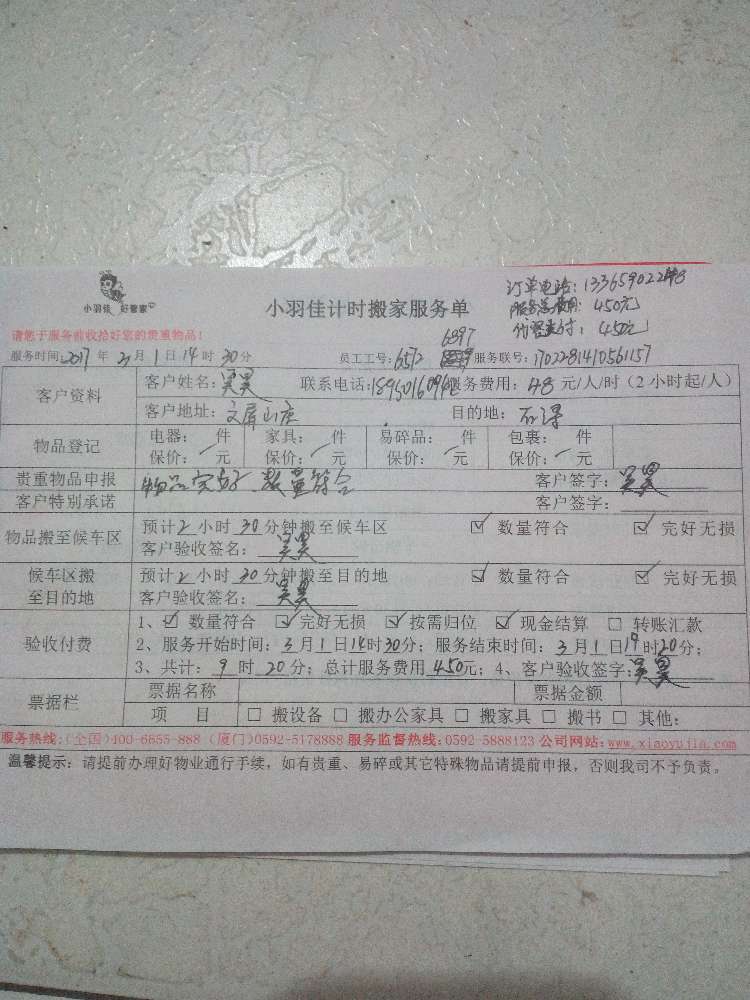 小羽佳 好管家
小羽佳计时搬家服务单
订单电话:
服务总费用: 450元
代理支付: 450元
请您于服务前收拾好您的贵重物品!
服务时间2017年3月1日14时30分 员工工号:6572 6897 服务联号:1702281410561157
客户资料
客户姓名:吴昊 联系电话: 服务费用:48元/人/时(2小时起/人)
客户地址:文屏山庄 目的地:
物品登记
电器: 件 家具: 件 易碎品: 件 包裹: 件
保价: 元 保价: 元 保价: 元 保价: 元
贵重物品申报 物品完好 数量符合 客户签字:吴昊
客户特别承诺 客户签字:
物品搬至候车区
预计2小时30分钟搬至候车区 ☑ 数量符合 ☑ 完好无损
客户验收签名:吴昊
候车区搬至目的地
预计2小时30分钟搬至目的地 ☑ 数量符合 ☑ 完好无损
客户验收签名:吴昊
验收付费
1、☑ 数量符合 ☑ 完好无损 ☑ 按需归位 ☑ 现金结算 □ 转账汇款
2、服务开始时间:3月1日14时30分;服务结束时间:3月1日19时20分;
3、共计:9时20分;总计服务费用450元;4、客户验收签字:吴昊
票据栏
票据名称 票据金额
项 目 □ 搬设备 □ 搬办公家具 □ 搬家具 □ 搬书 □ 其他:
服务热线:(全国)400-6655-888 (厦门)0592-5178888 服务监督热线:0592-5888123 公司网站:www.xiaoyujia.com
温馨提示:请提前办理好物业通行手续,如有贵重、易碎或其它特殊物品请提前申报,否则我司不予负责。